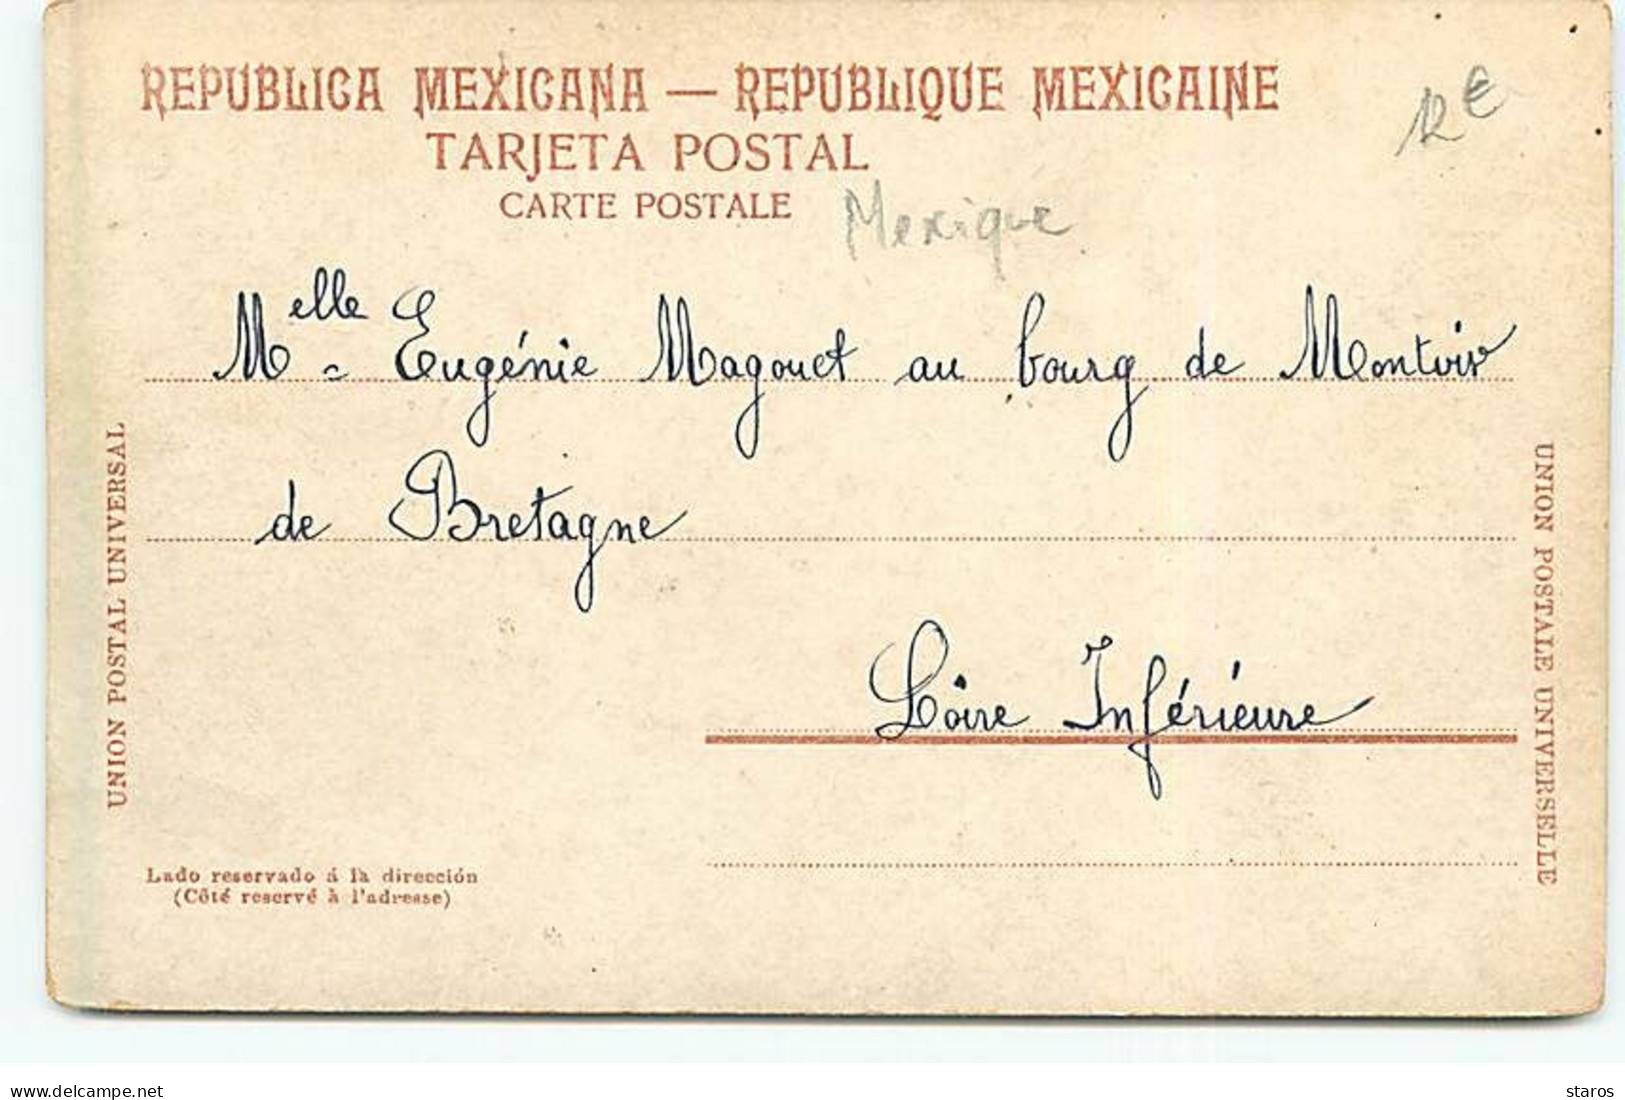 REPUBLICA MEXICANA — REPUBLIQUE MEXICAINE
12 €
TARJETA POSTAL
CARTE POSTALE
Mexique
Melle Eugénie Magouet au bourg de Montoir
de Bretagne
Loire Inférieure
UNION POSTAL UNIVERSAL
UNION POSTALE UNIVERSELLE
Lado reservado á la dirección
(Côté reservé à l'adresse)
delcampe.net
staros